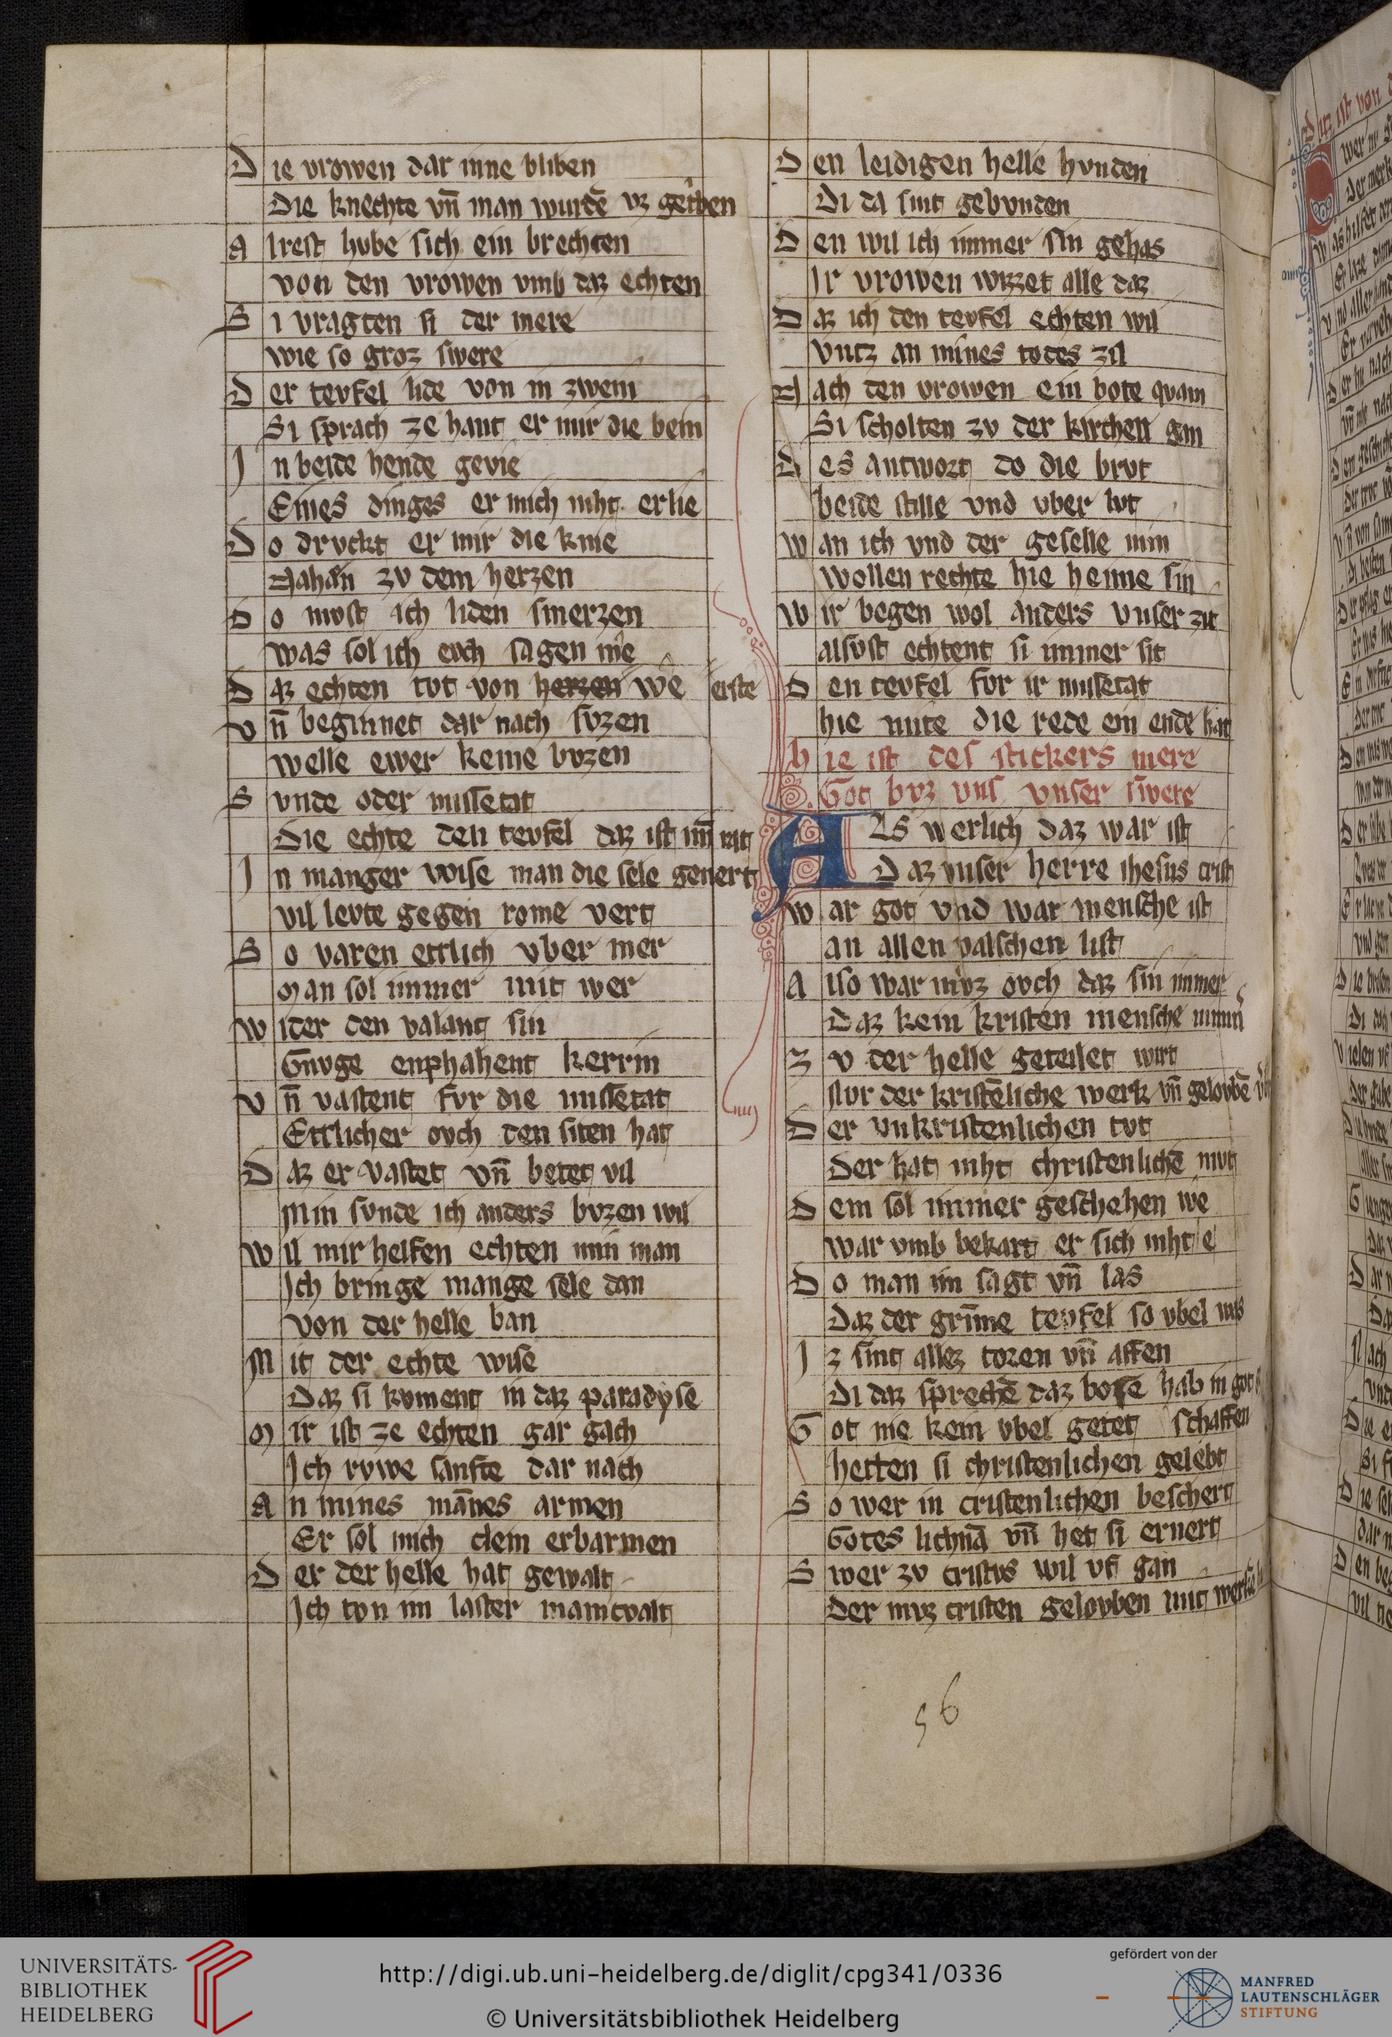 Die vrowen dar inne bliben
Die knechte vn̄ man wurdē vz getͥben
Alrest hube sich ein brechten
von den vrowen vmb daz echten
Si vragten si der mere
wie so groz swere
Der tevfel lide von in zwein
Si sprach ze hant er mir die bein
In beide hende gevie
Eines dinges er mich niht erlie
Do drvckt er mir die knie
Nahan zv dem herzen
Do most ich liden smerzen
was sol ich evch sagen me
Daz echten tvt von herzen we erste
Vn̄ beginnet dar nach svzen
welle ewer keine bvzen
Svnde oder missetat
Die echte den tevfel daz ist min̄ rat
In manger wise man die sele genert
vil levte gegen rome vert
So varen ettlich vber mer
Man sol immer mit wer
Wider den valant sin
Gnvge enphahent kerrin
Vn̄ vastent fvr die missetat
Ettlicher ovch den siten hat
Daz er vastet vn̄ betet vil
Min svnde ich anders bvzen wil
Wil mir helfen echten min man
Ich bringe mange sele dan
von der helle ban
Mit der echte wise
Daz si koment in daz paradyse
Mir ist ze echten gar gach
Ich rvwe sanfte dar nach
An mines mānes armen
Er sol mich clem erbarmen
Der der helle hat gewalt
Ich tvn im laster manicvalt
Den leidigen helle hvnden
Di da sint gebvnden
Den wil ich immer sin gehas
Ir vrowen wizzet alle daz
Daz ich den tevfel echten wil
vntz an mines todes zil
Nach den vrowen ein bote quam
Si scholten zv der kirchen gan
Des antwort do die brvt
beide stille vnd vber lvt
Wan ich vnd der geselle min
wollen rechte hie heime sin
Wir begen wol anders vnser zit
alsvst echtent si immer sit
Den tevfel fvr ir missetat
hie mite die rede ein ende hat
Hie ist des strickers mere
Got bvz vns vnser swere
Als werlich daz war ist
Daz vnser herre ihesus crist
War got vnd war mensche ist
an allen valschen list
Also war mvz ovch daz sin immer
Daz kein kristen mensche nimmͬ
Zv der helle geteilet wirt
Nvr der kristēliche werk vn̄ gelovbē
Der vnkristenlichen tvt
Der hat niht christenlichē mvt
Dem sol immer geschehen we
war vmb bekart er sich niht e
Do man im sagt vn̄ las
Daz der grīme tevfel so vbel was
Iz sint allez toren vn̄ affen
Di daz sprechē daz bose hab in got
Got nie kein vbel getet schaffen
hetten si christenlichen gelebt
So wer in cristenlichen beschert
Gotes lichnā vn̄ het si ernert
Swer zv cristvs wil vf gan
Der mvz cristen gelovben mit
56
UNIVERSITÄTS-
BIBLIOTHEK
HEIDELBERG
http://digi.ub.uni-heidelberg.de/diglit/cpg341/0336
© Universitätsbibliothek Heidelberg
gefördert von der
MANFRED
LAUTENSCHLÄGER
STIFTUNG